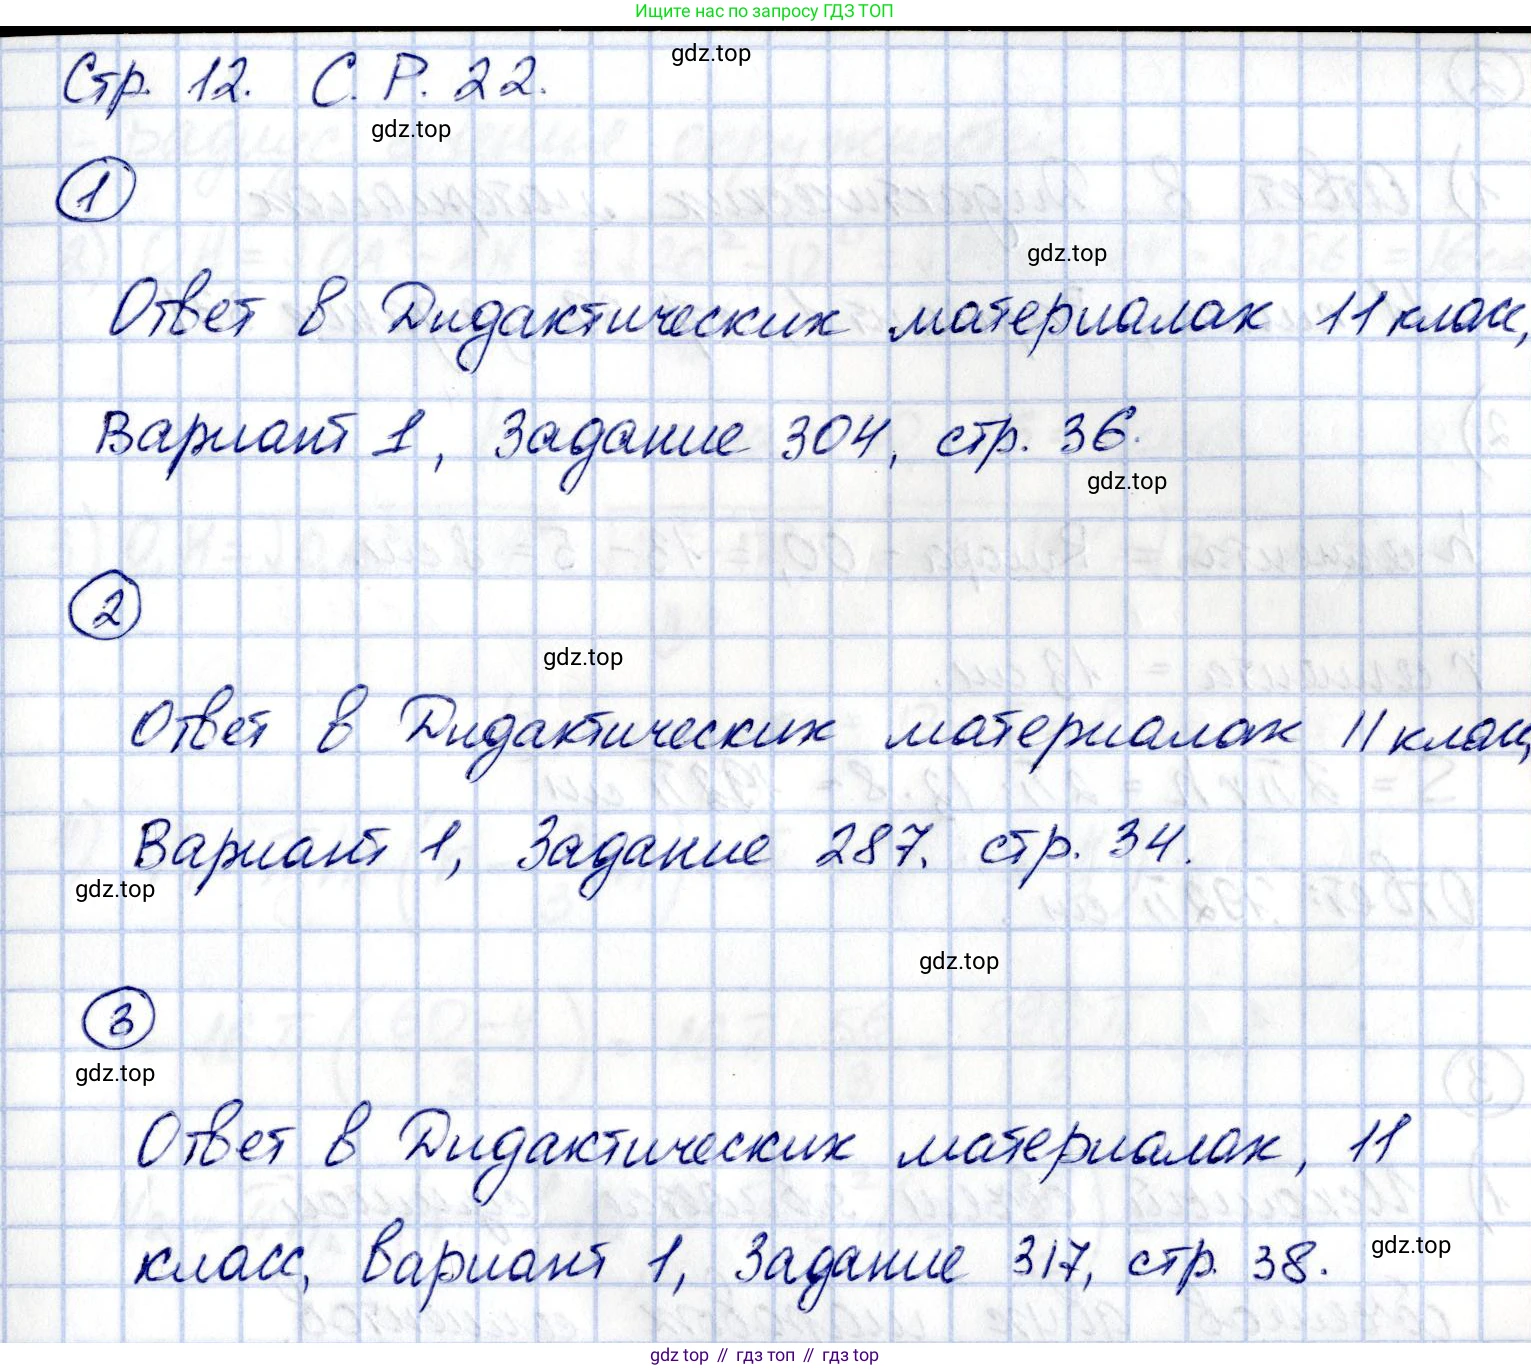 Ищите нас по запросу ГДЗ ТОП
gdz.top
Стр. 12. С. Р. 22.
gdz.top
1
gdz.top
Ответ в Дидактических материалах 11 класс,
Вариант 1, Задание 304, стр. 36.
gdz.top
2
gdz.top
Ответ в Дидактических материалах 11 класс,
Вариант 1, Задание 287. стр. 34.
gdz.top
gdz.top
3
gdz.top
Ответ в Дидактических материалах, 11
класс, Вариант 1, Задание 317, стр. 38.
gdz.top
gdz top // гдз топ // гдз top